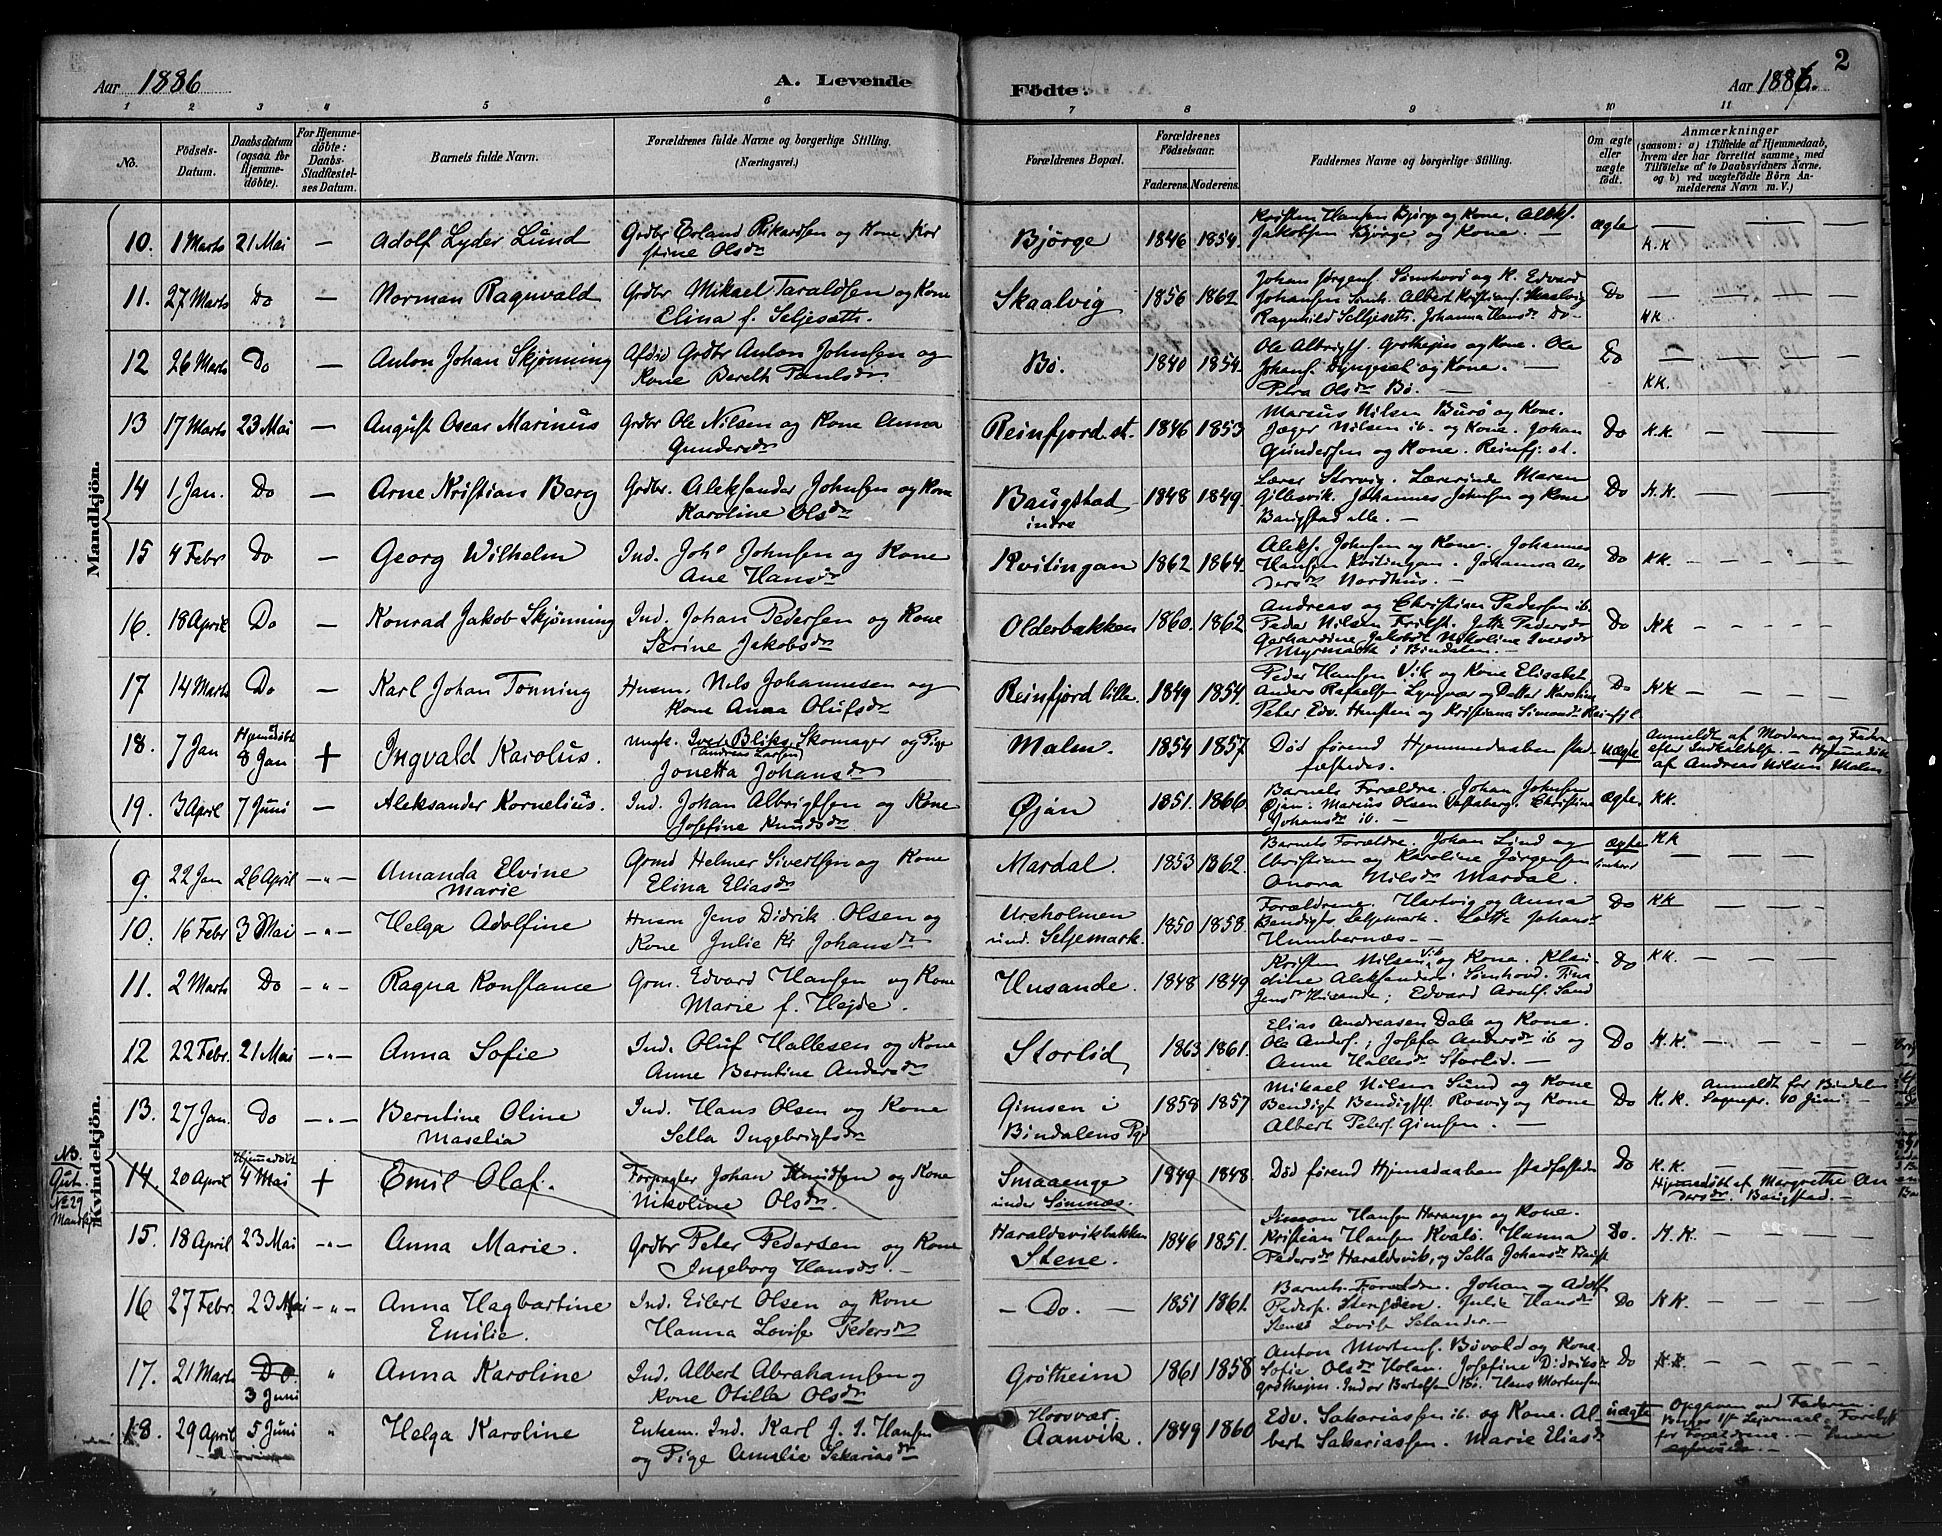 2
Aar 1886 A. Levende Födte. Aar 1886.
1 2 3 4 5 6 7 8 9 10 11
No. Födsels-Datum. Daabsdatum (ogsaa for Hjemme-döbte). For Hjemme-döbte: Daabs-Stadfæstel-ses Datum. Barnets fulde Navn. Forældrenes fulde Navne og borgerlige Stilling. (Næringsvei.) Forældrenes Bopæl. Forældrenes Födselsaar. Faderens. Moderens. Faddernes Navne og borgerlige Stilling. Om ægte eller uægte födt. Anmærkninger (saasom: a) i Tilfælde af Hjemmedaab, hvem der har forrettet samme, med Tilföielse af to Daabsvidners Navne. og b) ved uægtefödte Börn An-melderens Navn m. V.)
Mandkjön.
10. 1 Marts 21 Mai — Adolf Lyder Lund Grdbr Erland Rikardsen og Kone Kristine Olsdr Bjørge 1846 1854. Kristen Hansen Bjørge og Kone. Jakobsen Bjørge og Kone. — ægte K.K
11. 27 Marts Do — Norman Ragnvald Grdbr Mikael Taraldsen og Kone Elina f. Seljesæth. Skaalvig 1856 1862. Johan Jørgens. Sømhovd og K. Edvard Johansen Albert Kristians. Skaalvig Ragnhild Seljeseth. Johanna Hansdr Do — Do KK
12 26 Marts Do — Anton Johan Skjønning Grdbr Anton Johnsen og Kone Bereth Paulsdr. Bø. 1840 1854. Ole Albrigts. Grøtheim og Kone. Ole Johans. og Kone. — Petra Olsdr Bø. — Do KK.
13 17 Marts 23 Mai — August Oscar Marinus Grdbr Ole Nilsen og Kone Anna Gundersdr Reinfjord st. 1846 1853 Marius Nilsen og Kone. Jæger Nilsen ib. og Kone. Johan Gundersen og Kone. Reinfj. st. Do K.K.
14 1 Jan. Do — Arne Kristian Berg Grdbr. Aleksander Johnsen og Kone Karoline Olsdr Baugstad indre 1848 1849. Lærer Storvig. Lærerinde Maren Gillesvik. Johannes Johnsen og Kone Baugstad — Do K.K.
15 4 Febr Do — Georg Wilhelm Ind. Johs Johnsen og Kone Ane Hansdr Kvitingan 1862 1864. Aleks. Johnsen og Kone. Johannes Hansen Kvitingan. Johanna Andersdr Nordhus. — Do KK.
16. 18 April Do — Konrad Jakob Skjønning Ind. Johan Pedersen og Kone Serine Jakobsdr Olderbakken 1860. 1862 Andreas og Christian Pedersen ib. Peder Nilsen Pedersdr Gerhardine Jakobsdr Nikoline Iversdr i Bindalen. — Do KK
17 14 Marts Do — Karl Johan Tønning Husm. Nils Johannesen og Kone Anna Olufsdr Reinfjord lille. 1849 1854. Peder Hansen Vik og Kone Elisabet Anders Rafaelsen Lyngvær og Datter Karoline Peter Edv. og Kristiana Simonsdr Reinfj. l. Do KK
18. 7 Jan Hjemmedøbt 8 Jan + Ingvald Karolus. Ungk. Iver Bliks. Andreas Larsen Skomager og Pige Jonetta Johansdr Malm. 1854 1857. Død førend Hjemmedaaben stadfæstedes. uægte Anmeldt af Moderen og Faderen efter Indkaldelse. — Hjemmedøbt af Andreas Nilsen Malm
19. 3 April 7 Juni — Aleksander Kornelius. Ind. Johan Albrigtsen og Kone Josefine Knudsdr. Øjan 1851. 1866. Barnets Forældre. Johan Johnsen Øjan. Marius Olsen Christine Johansdr ib. — ægte KK.
Kvindekjön.
9. 22 Jan 26 April —"— Amanda Elvine Marie Grmd Helmer Sivertsen og Kone Elina Eliasdr Mardal. 1853 1862. Barnets Forældre. Johan Lund og Christian og Karoline Jørgensen Onora Nilsdr Mardal. ægte KK
10. 16 Febr 3 Mai —"— Helga Adolfine Husm Jens Didrik Olsen og Kone Julie Kr Johansdr Ursholmen und. Seljemark. 1850 1858. Forældrene. Hartvig og Anna Bendigts. Seljemark. Lotte Johansdr Humbernæs — Do KK
11. 2 Marts Do —"— Ragna Konstanse Grm. Edvard Hansen og Kone Marie f. Hejde. Husande. 1848 1849 Kristen Nilsen Vik og Kone. Klaudine Aleksandersdr Sømhovd. Tina Jensdr Husande; Edvard Arntss. Sand Do KK.
12 22 Febr. 21 Mai —"— Anna Sofie Ind. Oluf Hallesen og Kone Anne Berntine Andersdr Storlid 1863 1861. Elias Andreasen Dale og Kone. Ole Anders.; Josefa Andersdr ib og Anne Hallesdr Storlid. — Do K.K.
13. 27 Jan. Do —"— Berntine Oline Maselia Ind. Hans Olsen og Kone Sella Ingebrigtsdr Gimsen i Bindalens Pgd 1858 1857. Mikael Nilsen Sund og Kone Bendigt Bendigts. Rosvig og Kone Albert Peters. Gimsen. — Do K.K. Anmeldt for Bindalen Sognepr. 10 Juni —
NB. Gut. № 29 Mandkj.
14. 20 April Hjemmedøbt 4 Mai + Emil Olaf. Forpagter Johan Knudsen og Kone Nikoline Olsdr. Smaaenge under Sømnæs. 1849 1848. Død førend Hjemmedaaben stadfæstedes Do K.K. Hjemmedøbt af Margrethe Andersdr. Baugstad. —
15. 18 April 23 Mai —"— Anna Marie. Grdbr Peter Pedersen og Kone Ingeborg Hansdr. — Haraldsvikbakken Stene. 1846 1851. Simon Hansen Harangen og Kone. Kristian Hansen Kvalø. Hanna Pedersdr Haraldsvik, og Sella Johansdr Do. K.K.
16 27 Febr. 23 Mai —"— Anna Hagbartine Emilie. Ind. Eilert Olsen og Kone Hanna Lovise Pedersdr — Do. — 1851 1861. Barnets Forældre. Johan og Adolf Peders. Julie Hansdr Stene Lovise Selander. — Do KK.
17. 21 Marts Do. 3 Juni " Anna Karoline Ind. Albert Abrahamsen og Kone Otilla Olsdr Grøtheim 1861 1858 Anton Mortens. Bøvald og Kone. Sofie Olsdr Holan. Josefine Didriksdr Grøtheim. Indor Bertelsen Bø. Hans Mortensen Do K.K.
18. 29 April 5 Juni " Helga Karoline Enkem. Ind. Karl J. I. Hansen og Pige Amalie Sakariasdr Hoosvæt Aanvik. 1849 1860 Edv. Sakariassen ib. og Kone. Albert Sakariassen. Marie Eliasdr uægte Opgiven ved Faderen. for Forældrene. —